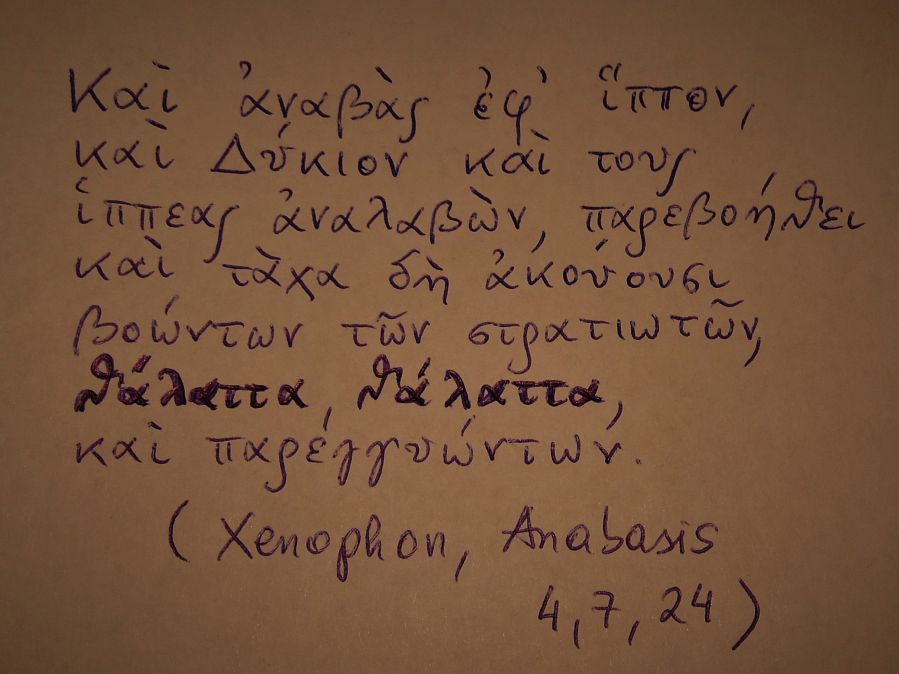 Καὶ ἀναβὰς ἐφ' ἵππον,
καὶ Δύκιον καὶ τους
ἱππεας ἀναλαβὼν, παρεβοήθει
καὶ τὰχα δὴ ἀκούουσι
βοώντων τῶν στρατιωτῶν,
θάλαττα, θάλαττα,
καὶ παρέγγυώντων.
(Xenophon, Anabasis
4,7,24)